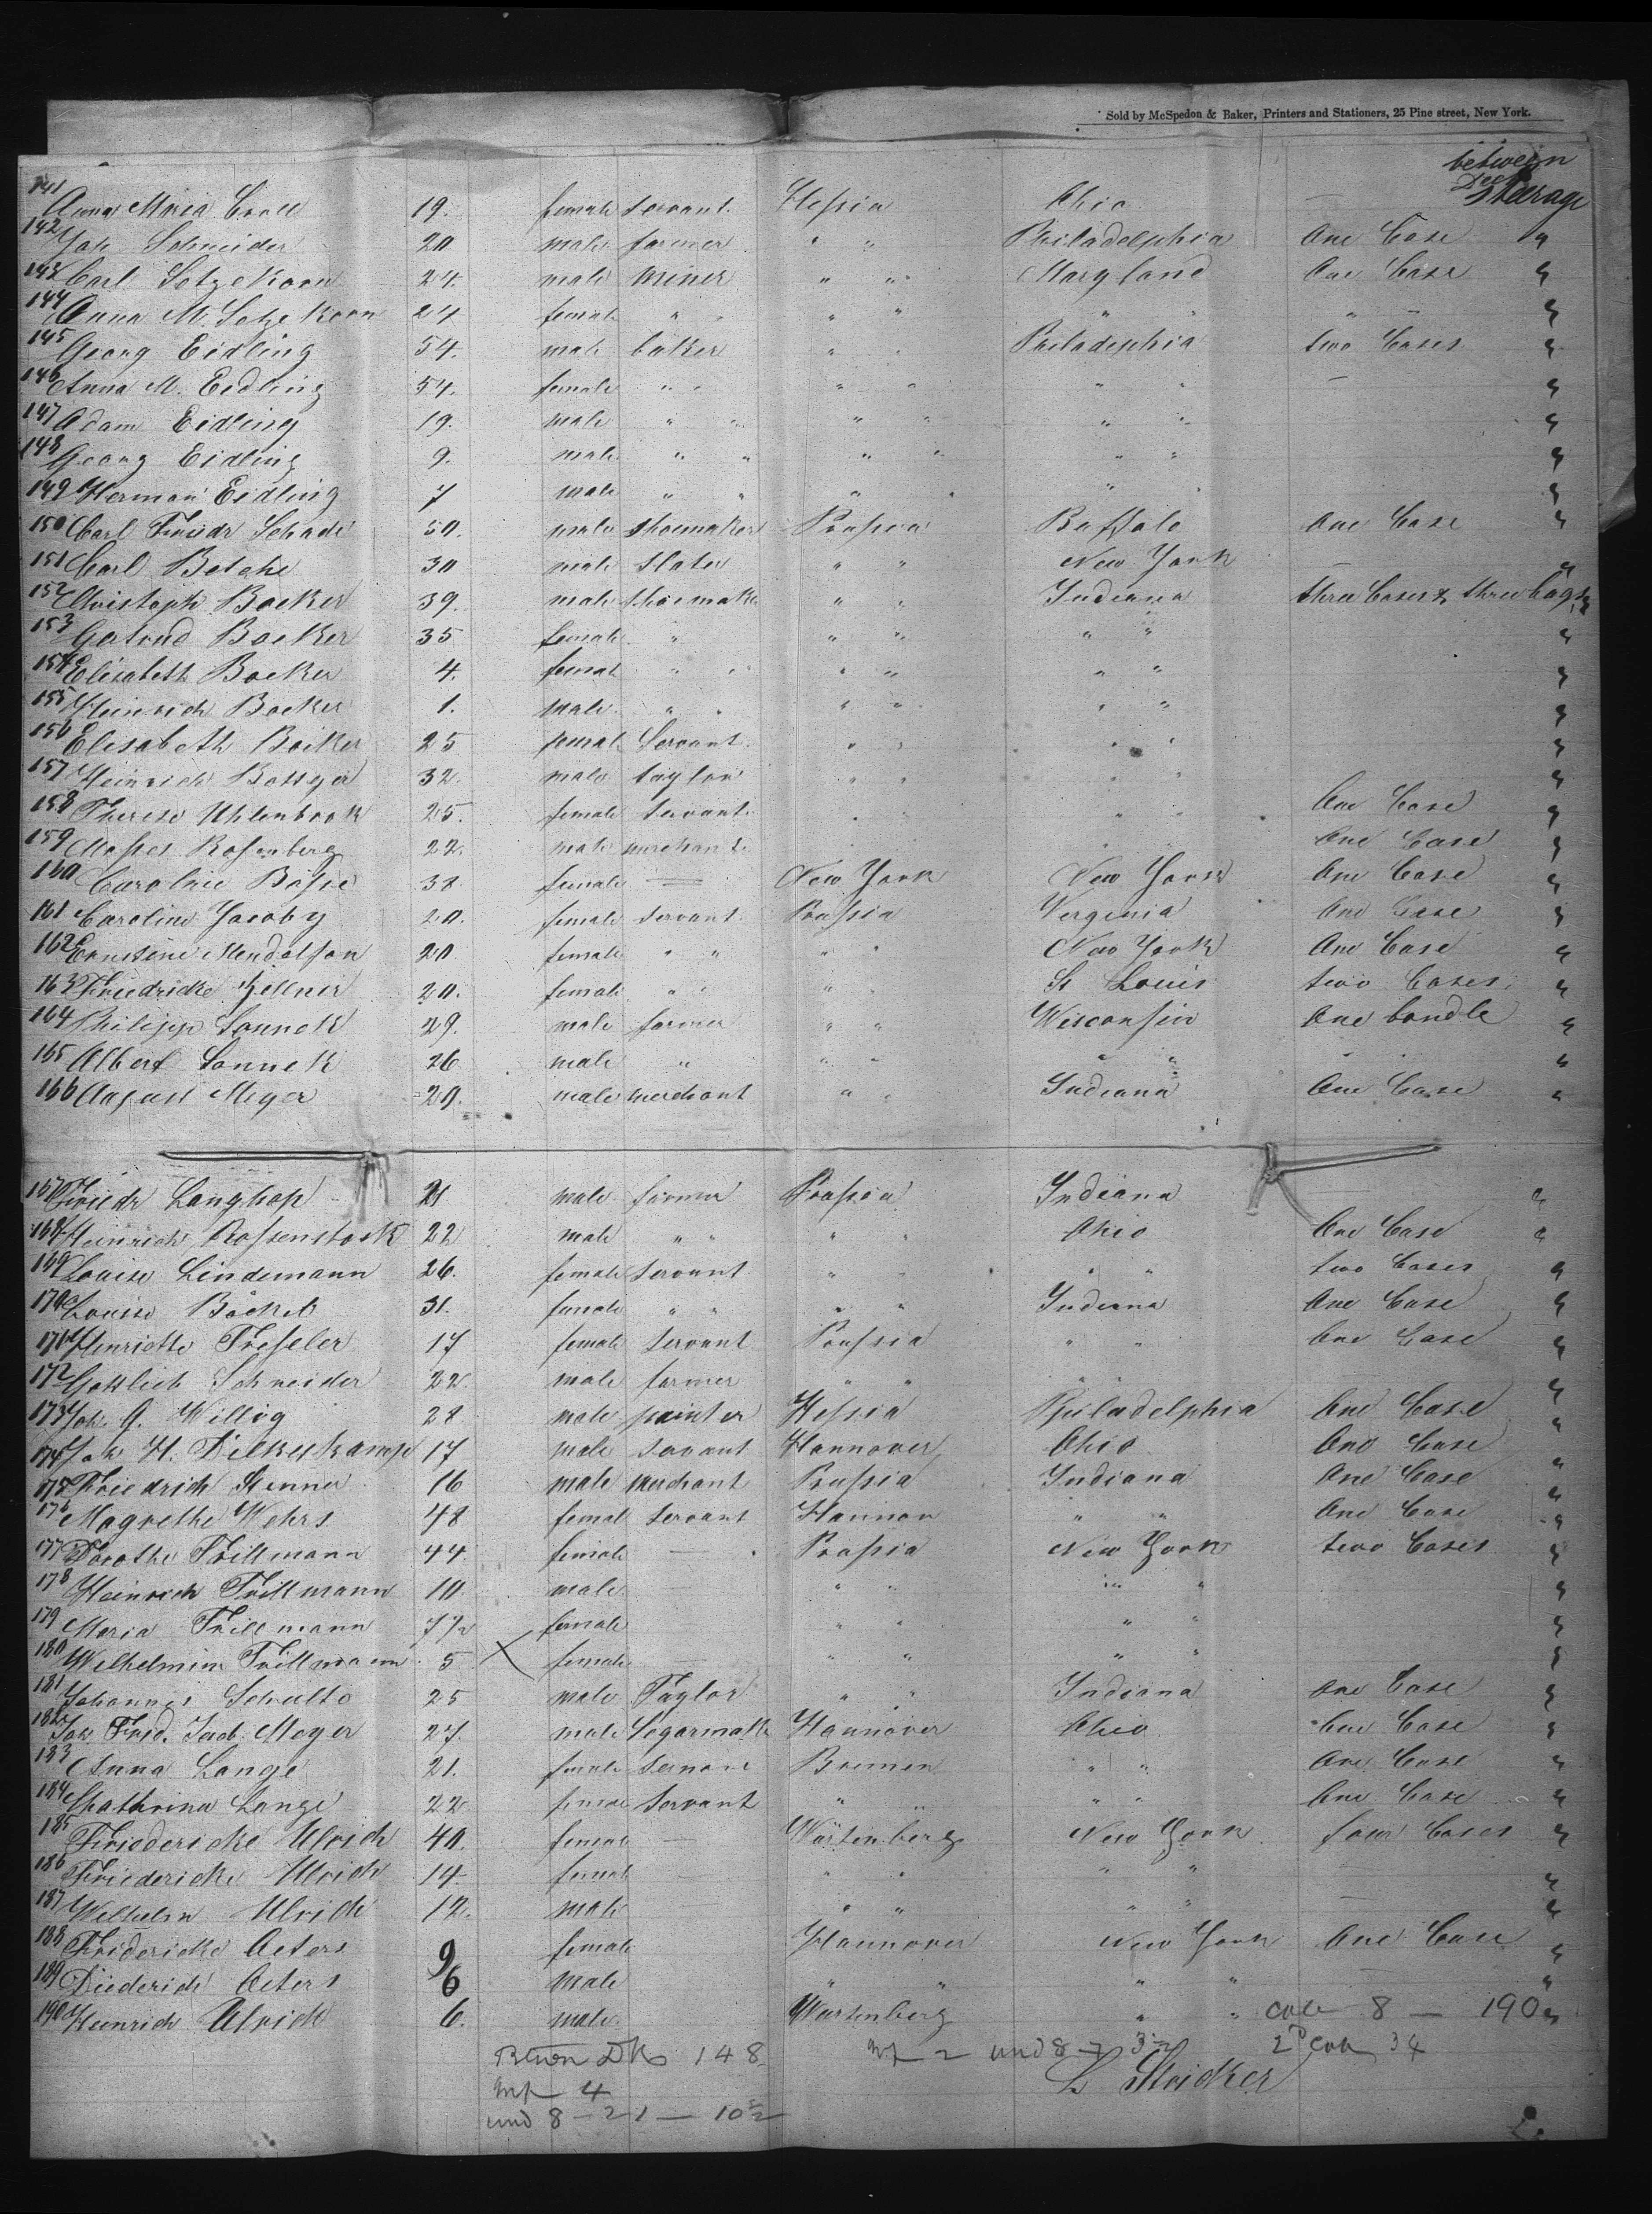 Sold by McSpedon & Baker, Printers and Stationers, 25 Pine street, New York.
between
Deck
Steerage
141 Anna Maria 19. female servant Hessia Ohio —
142 Joh Schneider 20 male farmer " " Philadelphia One Case "
143 Carl Sotzekorn 24. male miner " " Maryland One Case "
144 Anna M. Sotzekorn 24 female " " " " " " " " "
145 Georg Eidling 54. male baker " " Philadephia two Cases "
146 Anna M. Eidling 54. female " " " " " " — "
147 Adam Eidling 19. male " " " " " " "
148 Georg Eidling 9. male " " " " " " "
149 Herman Eidling 7 male " " " " " " "
150 Carl Friedr Schade 50. male shoemaker Prussia Buffalo One Case "
151 Carl Betche 30 male slater " " New York "
152 Christoph Boeker 39. male shoemaker " " Indiana three Cases & three bags "
153 Gertrud Boeker 35 female " " " " " "
154 Elisabeth Boeker 4. female " " " " " " "
155 Heinrich Boeker 1. male " " " " " " "
156 Elisabeth Boeker 25 female Servant " " " " "
157 Heinrich Bottger 32. male taylor " " " " "
158 Therese Uhlenbrock 25. female servant " " " " One Case "
159 Moses Rosenberg 22. male merchant " " " " One Case "
160 Caroline Bosse 38 female — New York New York One Case "
161 Caroline Jacoby 20. female servant Prussia Verginia One Case "
162 Ernstine Mendelson 20. female " " " " New York One Case "
163 Friedricke Zellner 20. female " " " " St Louis two Cases "
164 Philipp Sonnek 29. male farmer " " Wisconsin One bundle "
165 Albert Sonnek 26 male " " " " " " " "
166 August Meyer 29. male merchant " " Indiana One Case "
167 Friedr Langhop 21 male farmer Prussia Indiana "
168 Heinrich Rossenstock 22 male " " " " Ohio One Case "
169 Louise Lindemann 26. female servant " " " " two Cases "
170 Louise Böckel 31. female " " " " Indiana One Case "
171 Henriette Treseler 17 female servant Prussia " " One Case "
172 Gottlieb Schneider 22. male farmer " " " " "
173 Joh. G. Willig 28 male painter Hessia Philadelphia One Case "
174 Joh H. Dickerkamp 17 male servant Hannover Ohio One Case "
175 Friedrich Stenner 16 male merchant Prussia Indiana One Case "
176 Magrethe Wehrs 48 female servant Hannov " " One Case "
177 Dorothe Trillmann 44. female — Prussia New York two Cases "
178 Heinrich Trillmann 10. male " " " " "
179 Maria Trillmann 7½ female " " " " "
180 Wilhelmine Trillmann 5 X female — " " " " "
181 Johannes Schulte 25 male Taylor " " Indiana One Case "
182 Joh. Fried. Jacob Meyer 27. male Segarmak Hannover Ohio One Case "
183 Anna Lange 21. female servant Bremen " " One Case "
184 Chathrina Lange 22 female servant " " " " One Case "
185 Friedericke Ulrich 40. female — Würtenberg New York four Cases "
186 Friedericke Ulrich 14. female — " " " " "
187 Wilhelm Ulrich 12. male — " " " " — "
188 Fridericke Oeters 9 female Hannover New York One Case "
189 Diederich Oeters 6 male " " " " — "
190 Heinrich Ulrich 6. male Wurtenberg " "
190
Btween Dk 148
Inf 2 und 8 - 7 3½
2d Cab 34
Inf 4
und 8 - 21 - 10½